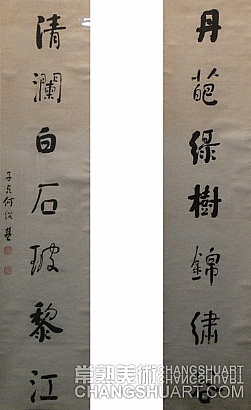 丹葩綠樹錦繡谷
清瀾白石玻黎江
子貞何紹基
常熟美術CHANGSHUART
CHANGSHUART.COM